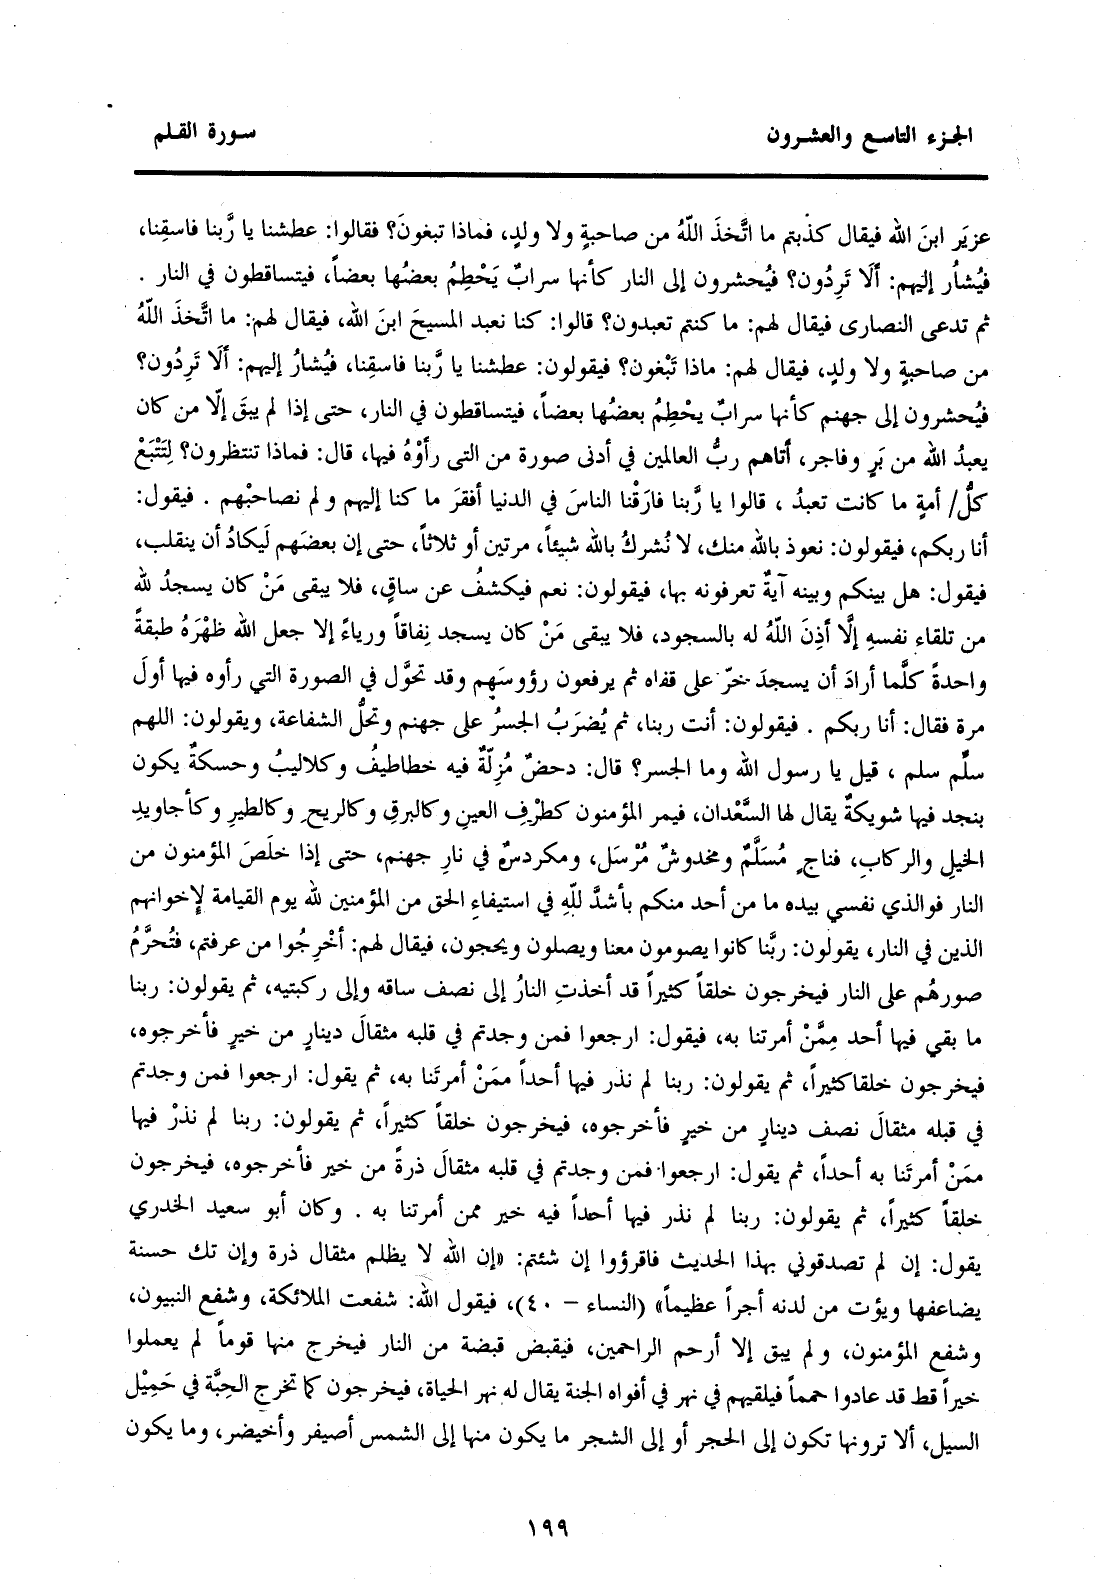 الجزء التاسع والعشرون
سورة القلم
عزيَر ابنَ الله فيقال كذبتم ما اتَّخذَ اللّهُ من صاحبةٍ ولا ولدٍ، فماذا تبغونَ؟ فقالوا: عطشنا يا رَّبنا فاسقِنا،
فيُشارُ إليهم: ألَا تَرِدُون؟ فيُحشرون إلى النار كأنها سرابٌ يَحْطِمُ بعضُها بعضاً، فيتساقطون في النار .
ثم تدعى النصارى فيقال لهم: ما كنتم تعبدون؟ قالوا: كنا نعبد المسيحَ ابنَ الله، فيقال لهم: ما اتَّخذَ اللّهُ
من صاحبةٍ ولا ولدٍ، فيقال لهم: ماذا تَبْغون؟ فيقولون: عطشنا يا رَّبنا فاسقِنا، فيُشارُ إليهم: ألَا تَرِدُون؟
فيُحشرون إلى جهنم كأنها سرابٌ يحْطِمُ بعضُها بعضاً، فيتساقطون في النار، حتى إذا لم يبقَ إلّا من كان
يعبدُ الله من بَرٍ وفاجر، أتاهم ربُّ العالمين في أدنى صورة من التى رأوْهُ فيها، قال: فماذا تنتظرون؟ لِتَتْبَعْ
كلُّ/ أمةٍ ما كانت تعبدُ ، قالوا يا رَّبنا فارَقْنا الناسَ في الدنيا أفقرَ ما كنا إليهم ولم نصاحبْهم . فيقول:
أنا ربكم، فيقولون: نعوذ بالله منك، لا نُشركُ بالله شيئاً، مرتين أو ثلاثاً، حتى إن بعضَهم لَيكادُ أن ينقلب،
فيقول: هل بينكم وبينه آيةٌ تعرفونه بها، فيقولون: نعم فيكشفُ عن ساقٍ، فلا يبقى مَنْ كان يسجدُ لله
من تلقاء نفسهِ إلَّا أذِنَ اللّهُ له بالسجود، فلا يبقى مَنْ كان يسجد نِفاقاً ورياءً إلا جعل الله ظهْرَهُ طبقةً
واحدةً كلَّما أرادَ أن يسجدَ خرّ على قفاه ثم يرفعون رؤوسَهم وقد تحوَّل في الصورة التي رأوه فيها أولَ
مرة فقال: أنا ربكم . فيقولون: أنت ربنا، ثم يُضرَبُ الجسرُ على جهنم وتحلُّ الشفاعة، ويقولون: اللهم
سلِّم سلم ، قيل يا رسول الله وما الجسر؟ قال: دحضٌ مُزِلّةٌ فيه خطاطيفُ وكلاليبُ وحسكةٌ يكون
بنجد فيها شويكةٌ يقال لها السَّعْدان، فيمر المؤمنون كطرْفِ العينِ وكالبرقِ وكالريحِ وكالطيرِ وكأجاويدِ
الخيلِ والركابِ، فناجٍ مُسَلَّمٌ ومخدوشٌ مُرْسَل، ومكردسٌ في نارِ جهنم، حتى إذا خلَصَ المؤمنون من
النار فوالذي نفسي بيده ما من أحد منكم بأشدَّ للّهِ في استيفاءِ الحق من المؤمنين لله يوم القيامة لإخوانهم
الذين في النار، يقولون: ربَّنا كانوا يصومون معنا ويصلون ويحجون، فيقال لهم: أخْرِجُوا من عرفتم، فتُحرَّمُ
صورهُم على النار فيخرجون خلقاً كثيراً قد أخذتِ النارُ إلى نصف ساقه وإلى ركبتيه، ثم يقولون: ربنا
ما بقي فيها أحد مِمَّنْ أمرتنا به، فيقول: ارجعوا فمن وجدتم في قلبه مثقالَ دينارٍ من خيرٍ فأخرجوه،
فيخرجون خلقاكثيراً، ثم يقولون: ربنا لم نذر فيها أحداً ممَنْ أمرتَنا به، ثم يقول: ارجعوا فمن وجدتم
في قبله مثقالَ نصف دينارٍ من خيرٍ فأخرجوه، فيخرجون خلقاً كثيراً، ثم يقولون: ربنا لم نذرْ فيها
ممَنْ أمرتَنا به أحداً، ثم يقول: ارجعوا فمن وجدتم في قلبه مثقالَ ذرةً من خير فأخرجوه، فيخرجون
خلقاً كثيراً، ثم يقولون: ربنا لم نذر فيها أحداً فيه خير ممن أمرتنا به . وكان أبو سعيد الخدري
يقول: إن لم تصدقوني بهذا الحديث فاقرؤوا إن شئتم: «إن الله لا يظلم مثقال ذرة وإن تك حسنة
يضاعفها ويؤت من لدنه أجراً عظيماً» (النساء – ٤٠)، فيقول الله: شفعت الملائكة، وشفع النبيون،
وشفع المؤمنون، ولم يبق إلا أرحم الراحمين، فيقبض قبضة من النار فيخرج منها قوماً لم يعملوا
خيراً قط قد عادوا حمماً فيلقيهم في نهر في أفواه الجنة يقال له نهر الحياة، فيخرجون كما تخرج الحِبَّة في حَمِيْل
السيل، ألا ترونها تكون إلى الحجر أو إلى الشجر ما يكون منها إلى الشمس أصيفر وأخيضر، وما يكون
١٩٩